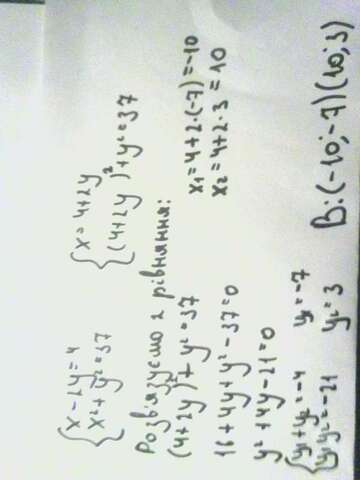 {x-2y=4
{x²+y²=37
{x=4+2y
{(4+2y)²+y²=37
Розв'язуємо 2 рівняння:
(4+2y)²+y²=37
16+4y+y²-37=0
y²+4y-21=0
{y₁+y₂=-4
{y₁y₂=-21
y₁=-7
y₂=3
x₁=4+2·(-7)=-10
x₂=4+2·3=10
В:(-10;-7)(10;3)